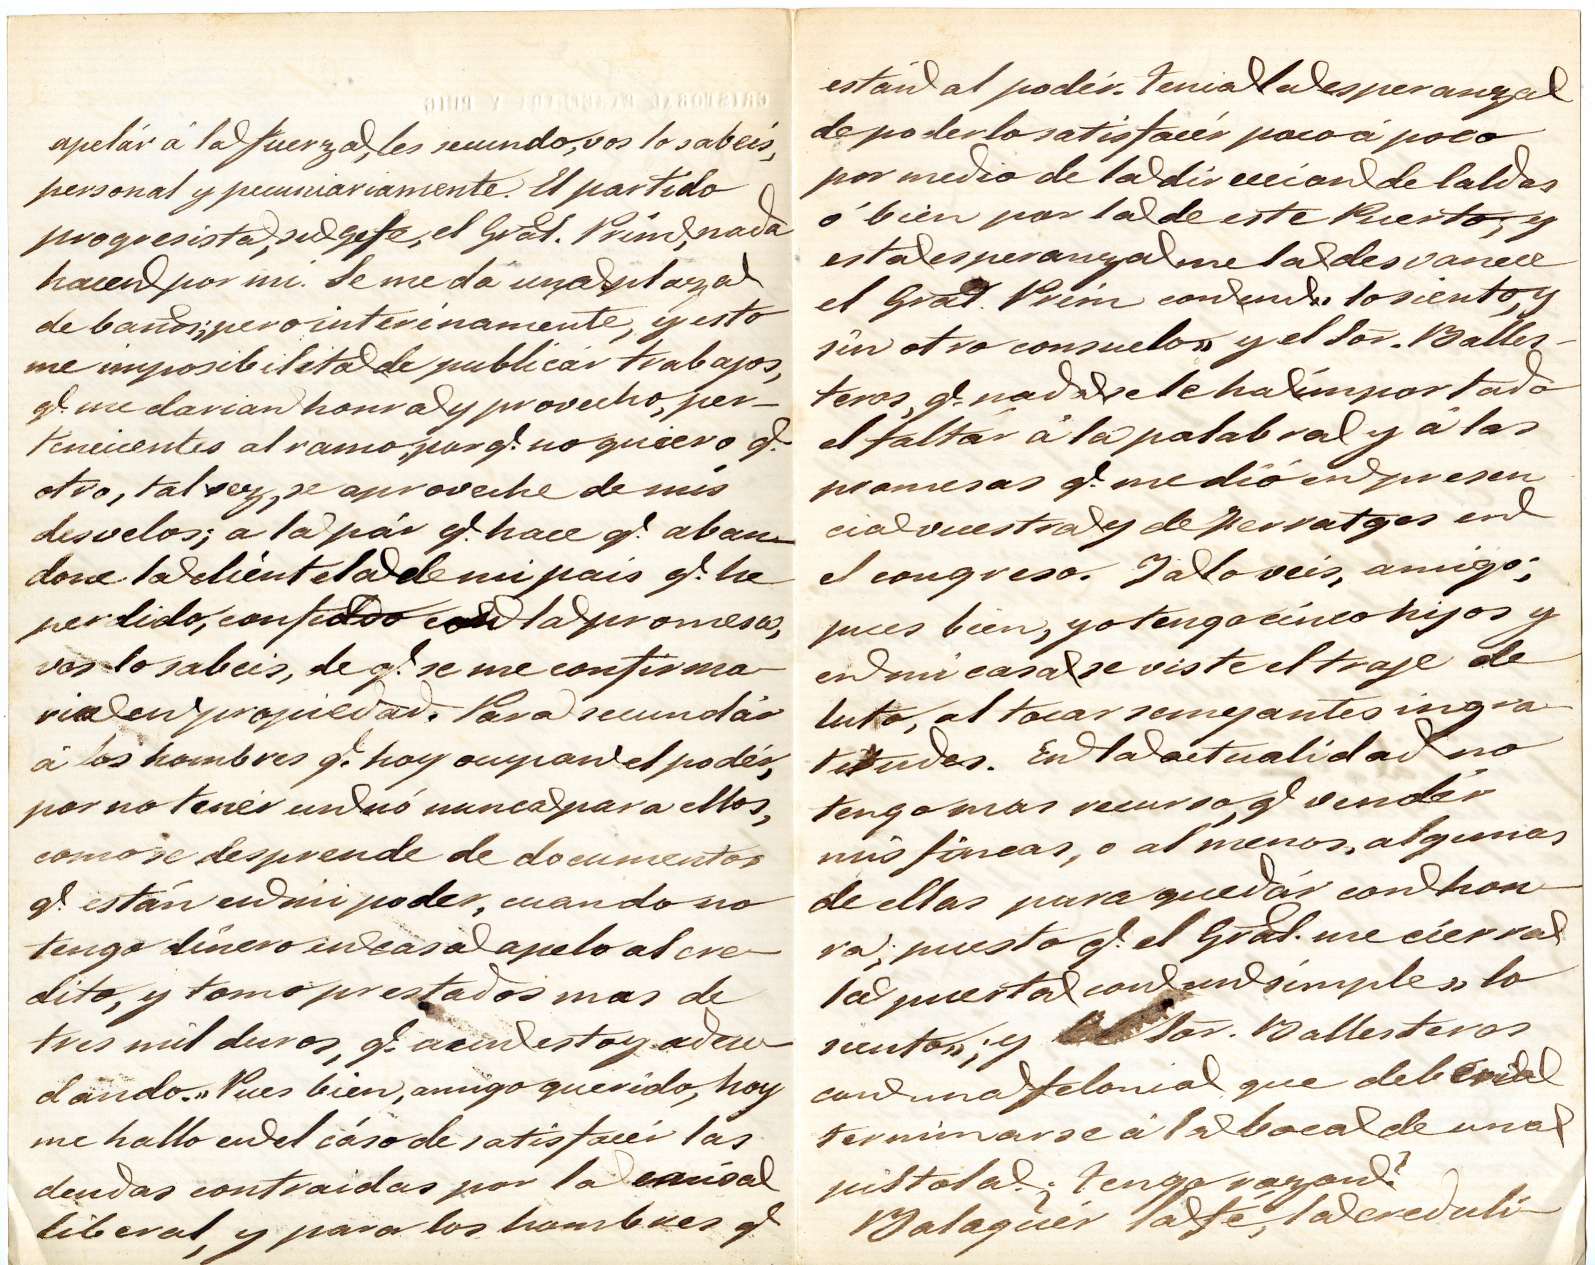 apelár á la fuerza, les secundo, vos lo sabeis,
personal y pecuniariamente. El partido
progresista, su gefe, el Gral. Prim, nada
hacen por mi. Se me dá una plaza
de baños; pero interinamente, y esto
me imposibilita de publicár trabajos,
q.e me darian honra y provecho, per-
tenecientes al ramo, porq.e no quiero q.e
otro, tal vez, se aproveche de mis
desvelos; a la pár q.e hace q.e aban-
done la clientela de mi pais q.e he
perdido, confiado con la promesa,
vos lo sabeis, de q.e se me confirma-
ria en propiedad. Para secundár
á los hombres q.e hoy ocupan el podér,
por no tenér un nó nunca para ellos,
como se desprende de documentos
q.e están en mi poder, cuando no
tengo dinero en casa apelo al cre-
dito, y tomo prestados mas de
tres mil duros, q.e aun estoy adeu-
dando." Pues bien, amigo querido, hoy
me hallo en el cáso de satisfacér las
deudas contraidas por la causa
liberal, y para los hombres q.e
CRISTOBAL Y PUIG
están al podér. Tenia la esperanza
de poderlo satisfacér poco á poco
por medio de la direccion de Caldas
ó bien por la de este Puerto, y
esta esperanza me la desvanece
el Gral. Prim con un "lo siento, y
sin otro consuelo" y el Sor. Balles-
teros, q.e nada se le ha importado
el faltár á la palabra y á las
promesas q.e me dió en presen
cia vuestra y de Ferratges en
el congreso. Ya lo veis, amigo;
pues bien, yo tengo cinco hijos y
en mi casa se viste el traje de
luto, al tocar semejantes ingra-
titudes. En la actualidad no
tengo mas recurso, q.e vendér
mis fincas, o al menos, algunas
de ellas para quedár con hon-
ra; puesto q.e el Gral. me cierra
la puerta con un simple "lo
siento"; y Sor. Ballesteros
con una felonia que deberia
terminarse á la boca de una
pistola. ¿Tengo razon?
Balaguér la fé, la creduli-